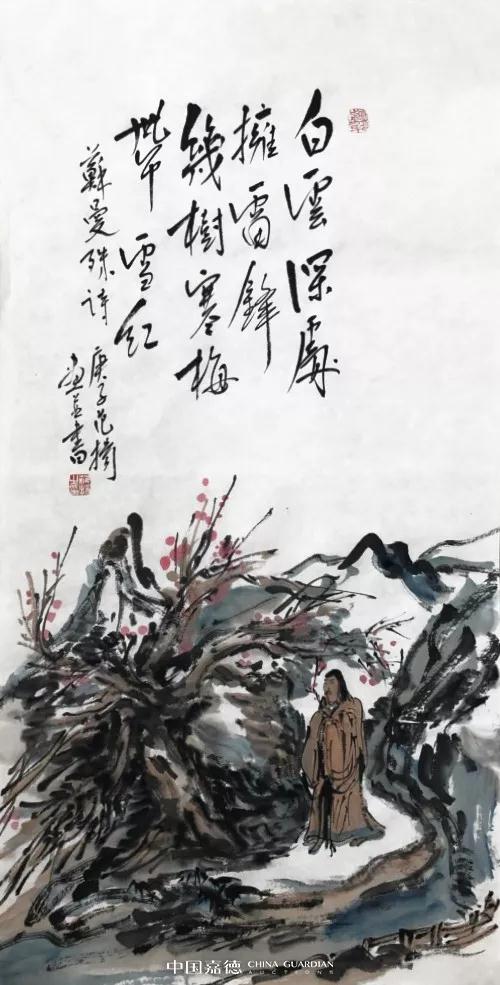 白雲深處
擁雷鋒
幾樹寒梅
帶雪紅
蘇曼殊詩
庚子范揚
畫並書
中国嘉德 CHINA GUARDIAN
AUCTIONS